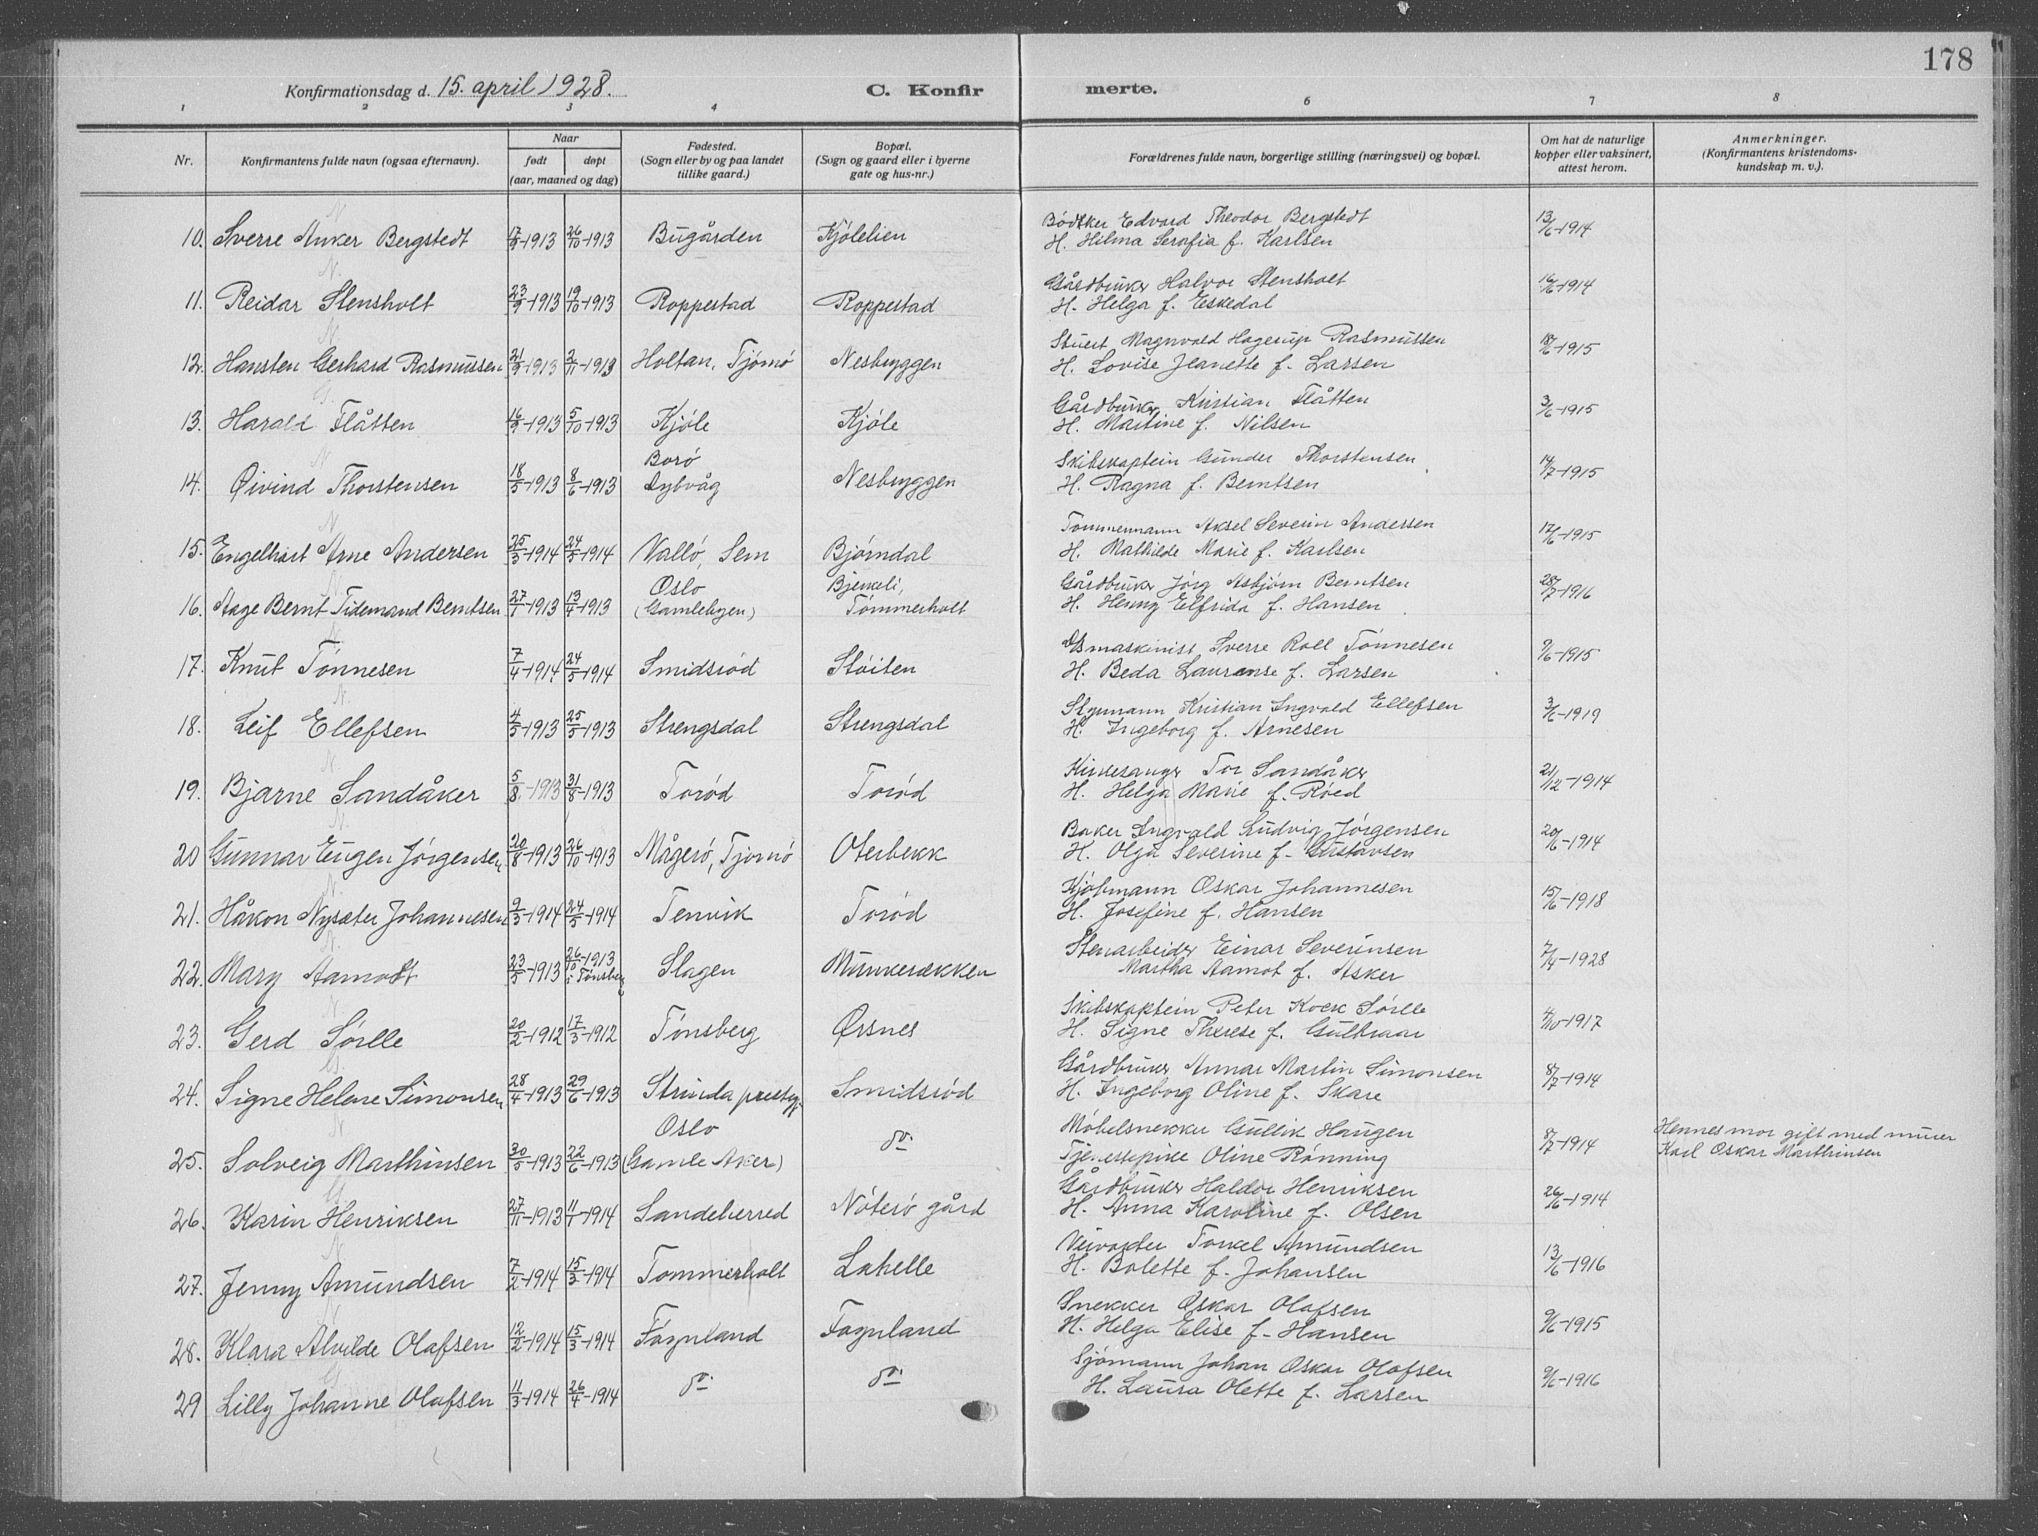 178
Konfirmationsdag d. 15. april 1928. C. Konfirmerte.
1 2 3 4 6 7 8
Nr. Konfirmantens fulde navn (ogsaa efternavn). Naar født døpt (aar, maaned og dag) Fødested. (Sogn eller by og paa landet tillike gaard.) Bopæl. (Sogn og gaard eller i byerne gate og hus-nr.) Forældrenes fulde navn, borgerlige stilling (næringsvei) og bopæl. Om hat de naturlige kopper eller vaksinert, attest herom. Anmerkninger. (Konfirmantens kristendomskundskap m. v.).
10. Sverre Anker Bergstedt 17/9-1913 26/10-1913 Bugården Kjølelien Bødtker Edvard Theodor Bergstedt 13/6-1914
H. Hilma Serafia f. Karlsen
11. Reidar Stensholt 23/9-1913 19/10-1913 Roppestad Roppestad Gårdbruker Halvor Stensholt 16/6-1914
H. Helga f. Eskedal
12. Hansten Gerhard Rasmussen 21/9-1913 2/11-1913 Holtan, Tjømø Nesbryggen Stuert Magnvald Hagerup Rasmussen 18/6-1915
H. Lovise Jeanette f. Larsen
13. Harald Flåtten 16/9-1913 5/10-1913 Kjøle Kjøle Gårdbruker Kristian Flåtten 3/6-1915
H. Martine f. Nilsen
14. Øivind Thorstensen 18/5-1913 8/6-1913 Borø Dybvåg Nesbryggen Skibskaptein Gunder Thorstensen 14/7-1915
H. Ragna f. Berntsen
15. Engelhart Arne Andersen 25/3-1914 24/5-1914 Vallø, Sem Bjørndal Tømmermann Aksel Severin Andersen 17/6-1915
H. Mathilde Marie f. Karlsen
16. Aage Bernt Tidemand Berntsen 27/1-1913 13/4-1913 Oslo (Gamlebyen) Bjerkeli, Tømmerholt Gårdbruker Jørg Asbjørn Berntsen 28/7-1916
H. Henny Elfrida f. Hansen
17. Knut Tønnesen 7/4-1914 24/5-1914 Smidsrød Støiten Ismaskinist Sverre Roll Tønnesen 9/6-1915
H. Beda Lauranse f. Larsen
18. Leif Ellefsen 4/5-1913 25/5-1913 Strengsdal Strengsdal Styrmann Kristian Ingvald Ellefsen 3/6-1919
H. Ingeborg f. Arnesen
19. Bjarne Sandåker 5/8-1913 31/8-1913 Torød Torød Kirkesanger Tor Sandåker 21/12-1914
H. Helga Marie f. Røed
20 Gunnar Eugen Jørgensen 20/8-1913 26/10-1913 Mågerø, Tjømø Oterbekk Baker Ingvald Ludvig Jørgensen 20/6-1914
H. Olga Severine f. Gustavsen
21. Håkon Nysæter Johannesen 9/3-1914 24/5-1914 Tenvik Torød Kjøpmann Oskar Johannesen 15/6-1918
H. Josefine f. Hansen
22. Mary Aamodt 23/5-1913 26/10-1913 i Tønsberg Slagen Munkerækken Stenarbeider Einar Severinsen 7/4-1928
Martha Aamot f. Asker
23. Gerd Sørlle 20/2-1912 17/3-1912 Tønsberg Ørsnes Skibskaptein Peter Kock Sørlle 4/10-1917
H. Signe Therese f. Gulbraar
24. Signe Helene Simonsen 28/4-1913 29/6-1913 Strinda prestegj. Smidsrød Gårdbruker Annar Martin Simonsen 8/7-1914
H. Ingeborg Oline f. Skare
25. Solveig Marthinsen 30/5-1913 22/6-1913 Oslo (Gamle Aker) do Møbelsnekker Gullik Haugen 8/7-1914 Hennes mor gift med murer
Tjenestepike Oline Rønning Karl Oskar Marthinsen
26. Karin Henriksen 27/11-1913 11/1-1914 Sandeherred Nøterø gård Gårdbruker Haldor Henriksen 26/6-1914
H. Anna Karoline f. Olsen
27. Jenny Amundsen 7/2-1914 15/3-1914 Tømmerholt Lahelle Veivokter Torkel Amundsen 13/6-1916
H. Bolette f. Johansen
28. Klara Alvilde Olafsen 12/2-1914 15/3-1914 Føynland Føynland Snekker Oskar Olafsen 9/6-1915
H. Helga Elise f. Hansen
29 Lilly Johanne Olafsen 11/3-1914 26/4-1914 do do Sjømann Johan Oskar Olafsen 9/6-1916
H. Laura Olette f. Larsen